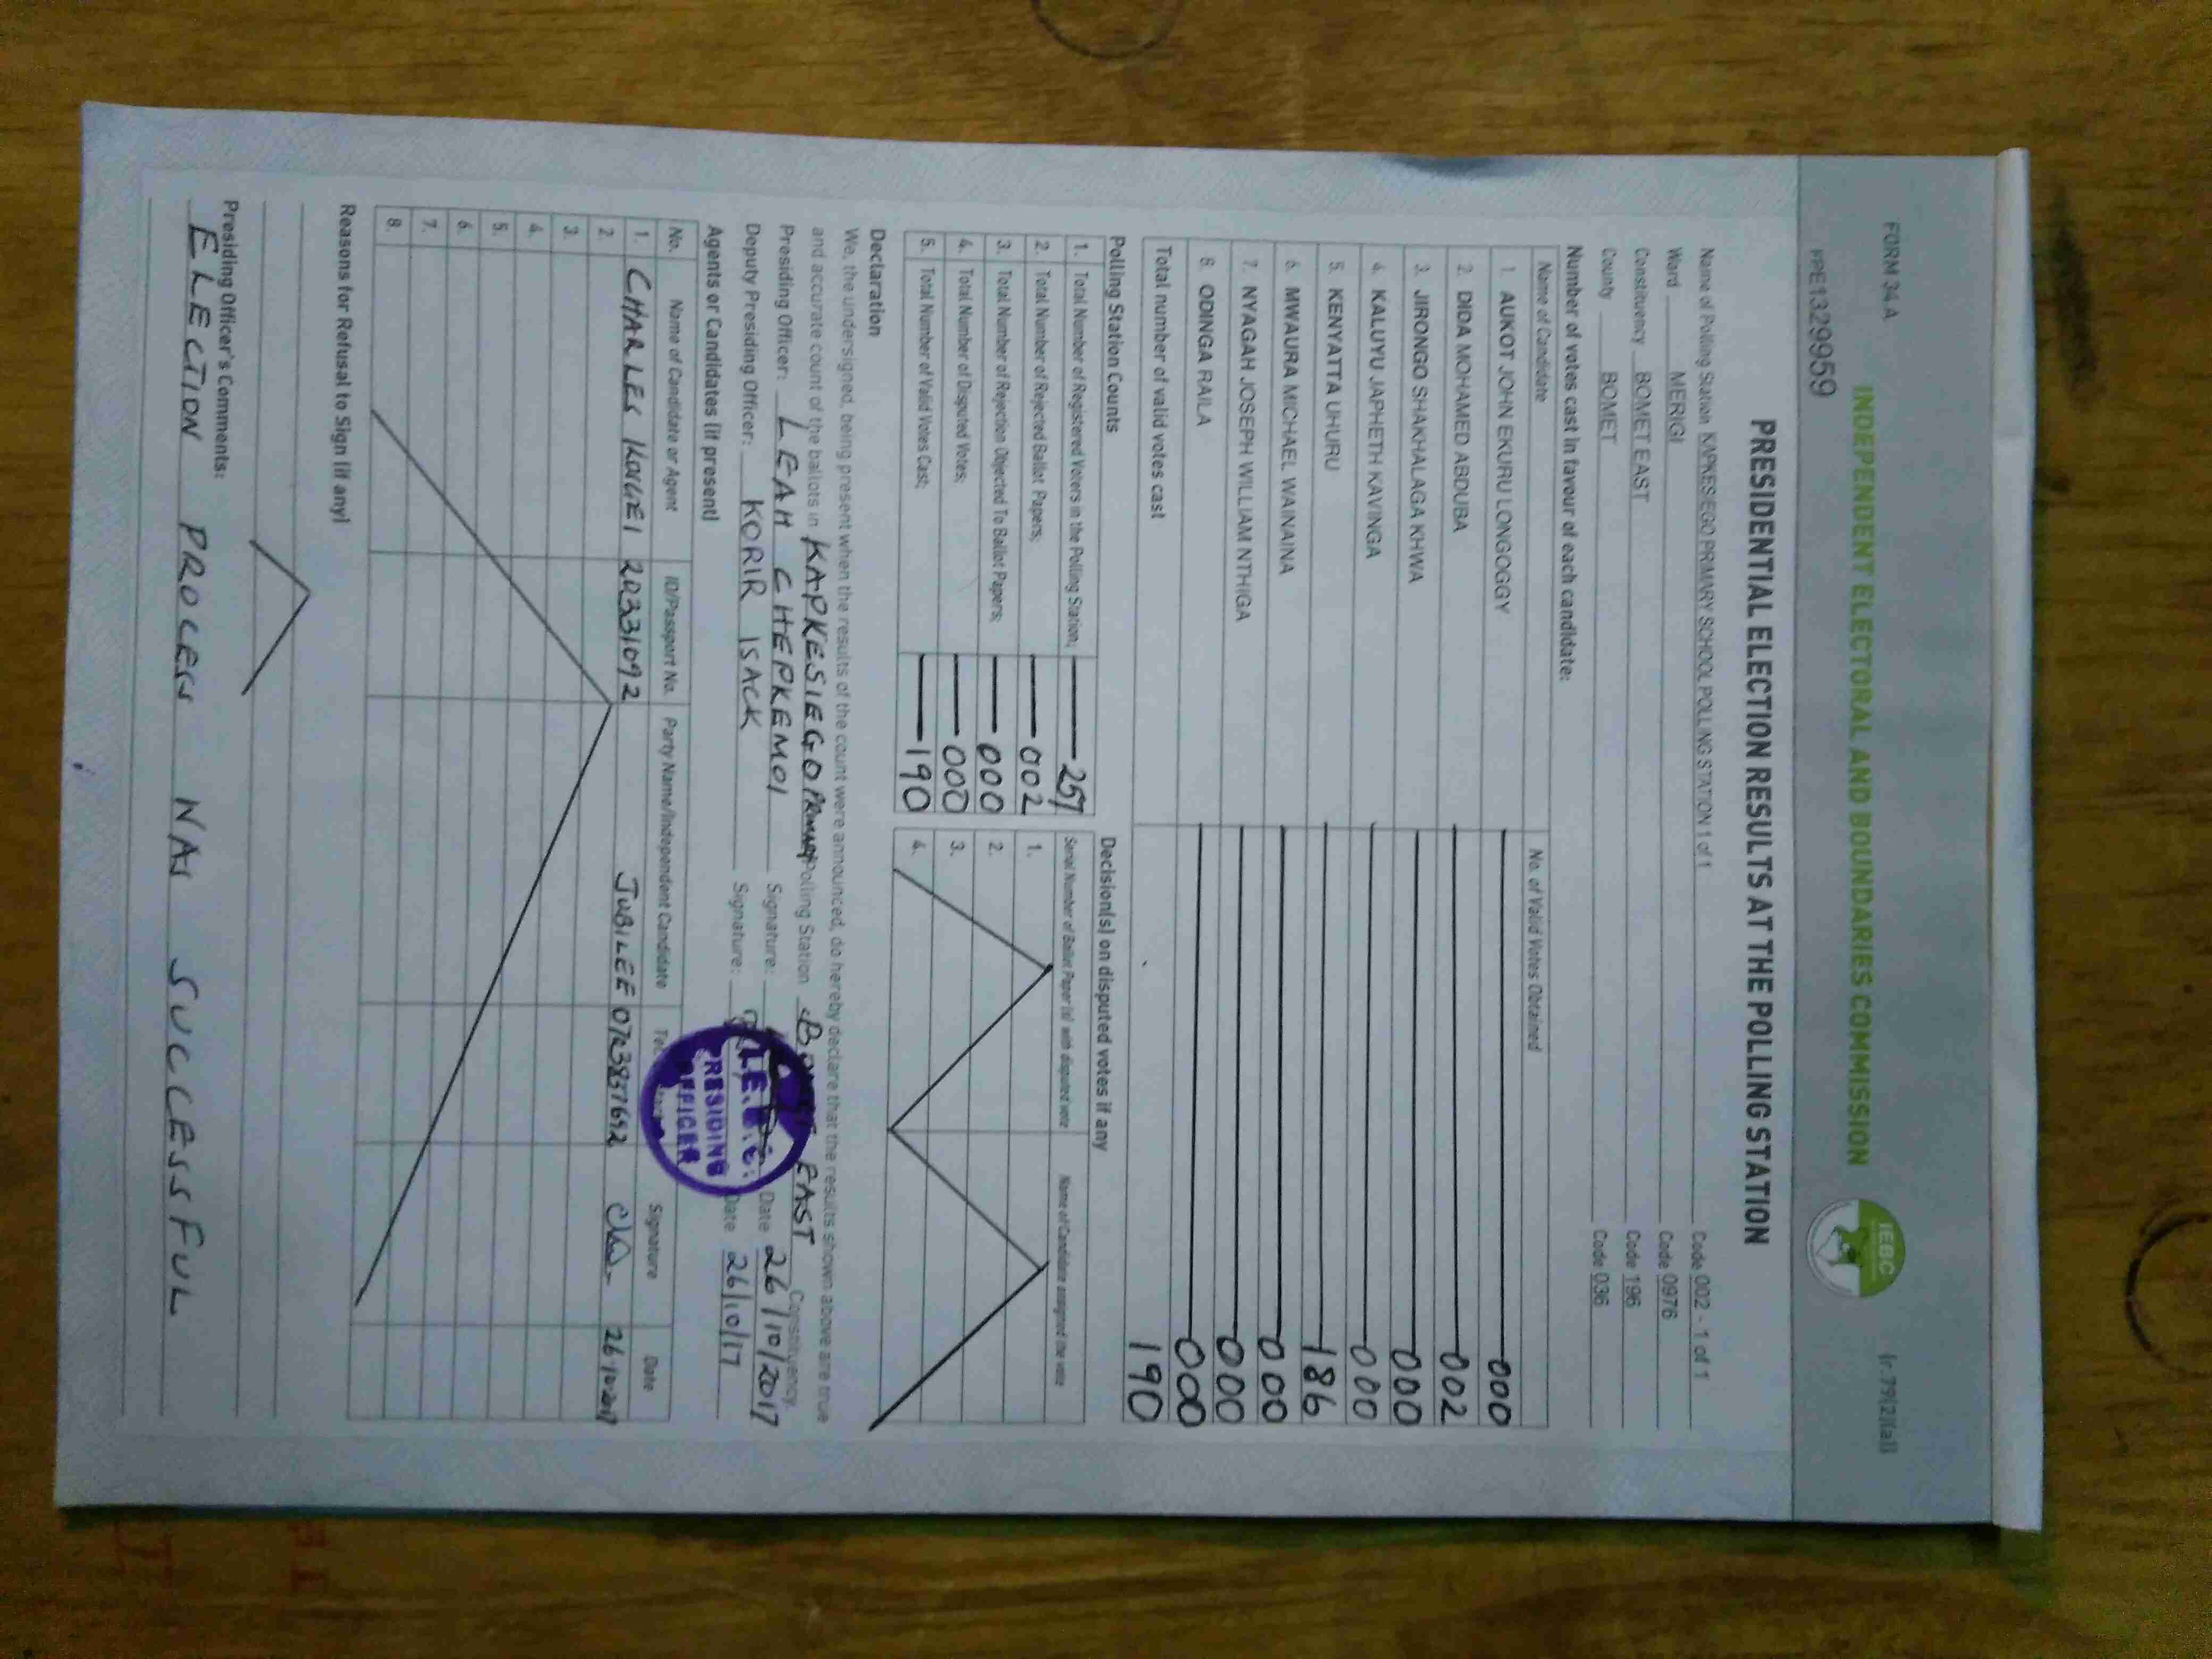 FORM 34A
(r.79(2)(a))
INDEPENDENT ELECTORAL AND BOUNDARIES COMMISSION
IEBC
FPE1329959
PRESIDENTIAL ELECTION RESULTS AT THE POLLING STATION
Name of Polling Station KAPKESIEGO PRIMARY SCHOOL POLLING STATION 1 of 1 Code 002 - 1 of 1
Ward MERIGI Code 0976
Constituency BOMET EAST Code 196
County BOMET Code 036
Number of votes cast in favour of each candidate:
Name of Candidate No. of Valid Votes Obtained
1. AUKOT JOHN EKURU LONGOGGY 000
2. DIDA MOHAMED ABDUBA 002
3. JIRONGO SHAKHALAGA KHWA 000
4. KALUYU JAPHETH KAVINGA 000
5. KENYATTA UHURU 186
6. MWAURA MICHAEL WAINAINA 000
7. NYAGAH JOSEPH WILLIAM NTHIGA 000
8. ODINGA RAILA 000
Total number of valid votes cast 190
Polling Station Counts
1. Total Number of Registered Voters in the Polling Station;
2. Total Number of Rejected Ballot Papers; 002
3. Total Number of Rejection Objected To Ballot Papers; 000
4. Total Number of Disputed Votes; 000
5. Total Number of Valid Votes Cast; 190
Decision(s) on disputed votes if any
Serial Number of Ballot Paper (s) with disputed vote Name of Candidate assigned the vote
1.
2.
3.
4.
Declaration
We, the undersigned, being present when the results of the count were announced, do hereby declare that the results shown above are true
and accurate count of the ballots in KAPKESIEGO Polling Station BOMET EAST Constituency.
Presiding Officer: LEAH CHEPKEMOI Signature: Date 26/10/2017
Deputy Presiding Officer: KORIR ISACK Signature: Date 26/10/17
PRESIDING
OFFICER
Agents or Candidates (if present)
No. Name of Candidate or Agent ID/Passport No. Party Name/Independent Candidate Signature Date
1. CHARLES 20331092 JUBILEE 26.10.2017
2.
3.
4.
5.
6.
7.
8.
Reasons for Refusal to Sign (if any)
Presiding Officer's Comments:
ELECTION PROCESS WAS SUCCESSFUL